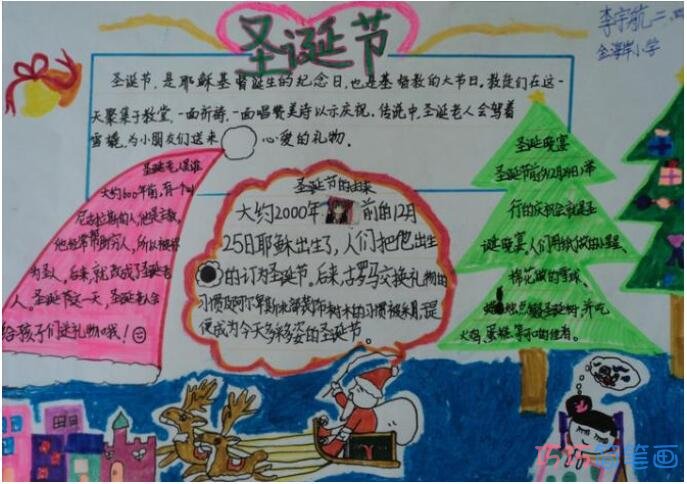 圣诞节
李宇航二、四
金海岸小学
圣诞节,是耶稣基督诞生的纪念日,也是基督教的大节日,教徒们在这一
天聚集于教堂,一面祈祷,一面唱赞美诗以示庆祝。传说中,圣诞老人会驾着
雪橇,为小朋友们送来 心爱的礼物。
圣诞老人是谁
大约1600年前,有一个叫
尼古拉斯的人,他是主教,
他经常帮助穷人,所以被称
为圣人。后来,就改成了圣诞老
人。圣诞节这一天,圣诞老人会
给孩子们送礼物哦!
圣诞节的由来
大约2000年 前的12月
25日耶稣出生了,人们把他出生
的 订为圣诞节。后来,古罗马交换礼物的
习惯及阿尔卑斯 部装饰树木的习惯被采用于是
便成为今天多彩多姿的圣诞节。
圣诞晚宴
圣诞节前夕12月24日举
行的庆祝会就是圣
诞晚宴。人们用纸做的小星星、
棉花做的雪球、
蜡烛点缀圣诞树,并吃
火鸡,蛋糕等 佳肴。
巧巧简笔画